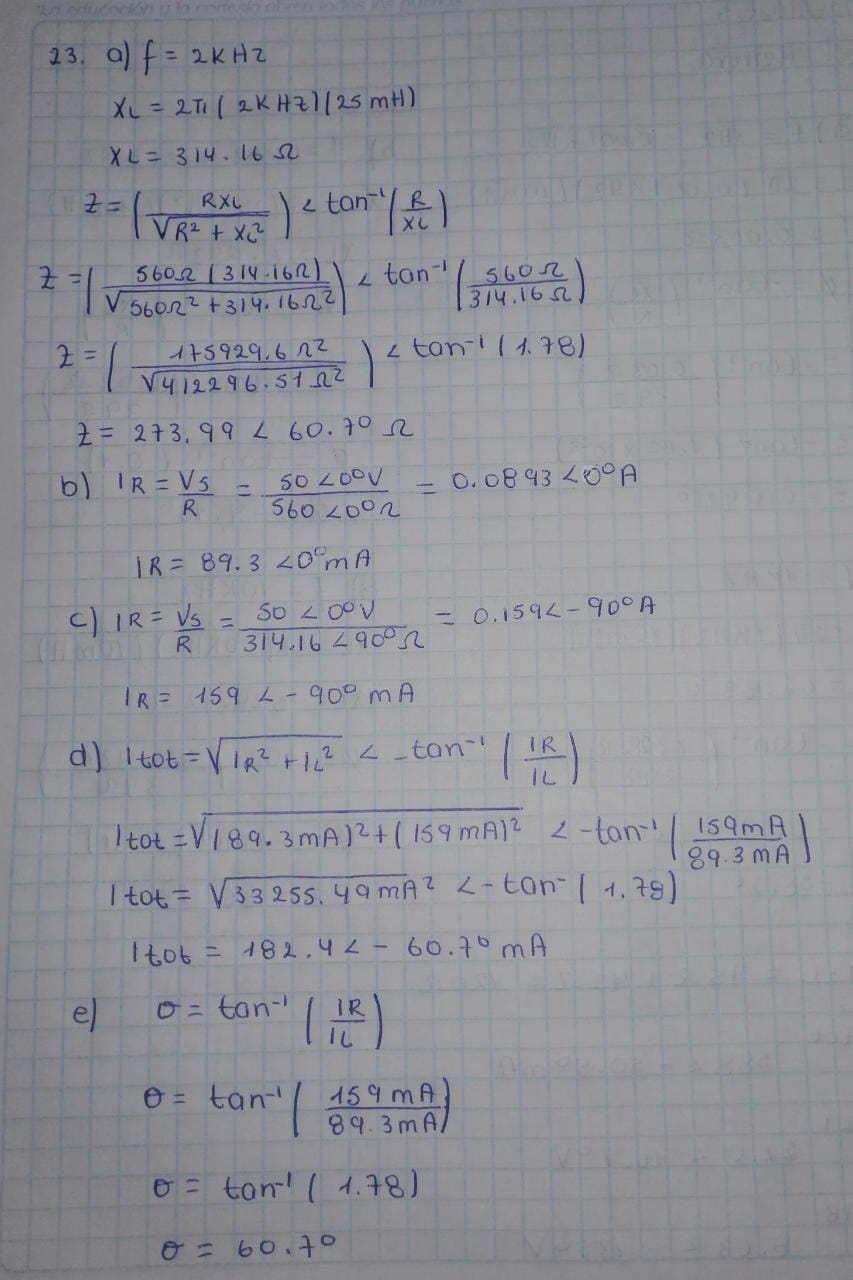 "La educación y la cortesía abren todas las puertas"
23. a) f = 2KHz
XL = 2π ( 2KHz)(25mH)
XL = 314.16 Ω
Z = ( RXL / √R² + XL² ) < tan⁻¹ ( R / XL )
Z = ( 560Ω (314.16Ω) / √560Ω² + 314.16Ω² ) < tan⁻¹ ( 560Ω / 314.16Ω )
Z = ( 175929.6 Ω² / √412296.51 Ω² ) < tan⁻¹ ( 1.78)
Z = 273.99 < 60.7° Ω
b) IR = Vs / R = 50 <0°V / 560 <0°Ω = 0.0893 <0°A
IR = 89.3 <0°mA
c) IR = Vs / R = 50 < 0°V / 314.16 <90°Ω = 0.159<-90°A
IR = 159 < - 90° mA
d) Itot = √IR² + IL² < -tan⁻¹ ( IR / IL )
Itot = √(89.3mA)² + ( 159mA)² < -tan⁻¹ ( 159mA / 89.3mA )
Itot = √33255.49mA² < -tan⁻ ( 1.78)
Itot = 182.4 < - 60.7° mA
e) θ = tan⁻¹ ( IR / IL )
θ = tan⁻¹ ( 159mA / 89.3mA )
θ = tan⁻¹ ( 1.78)
θ = 60.7°